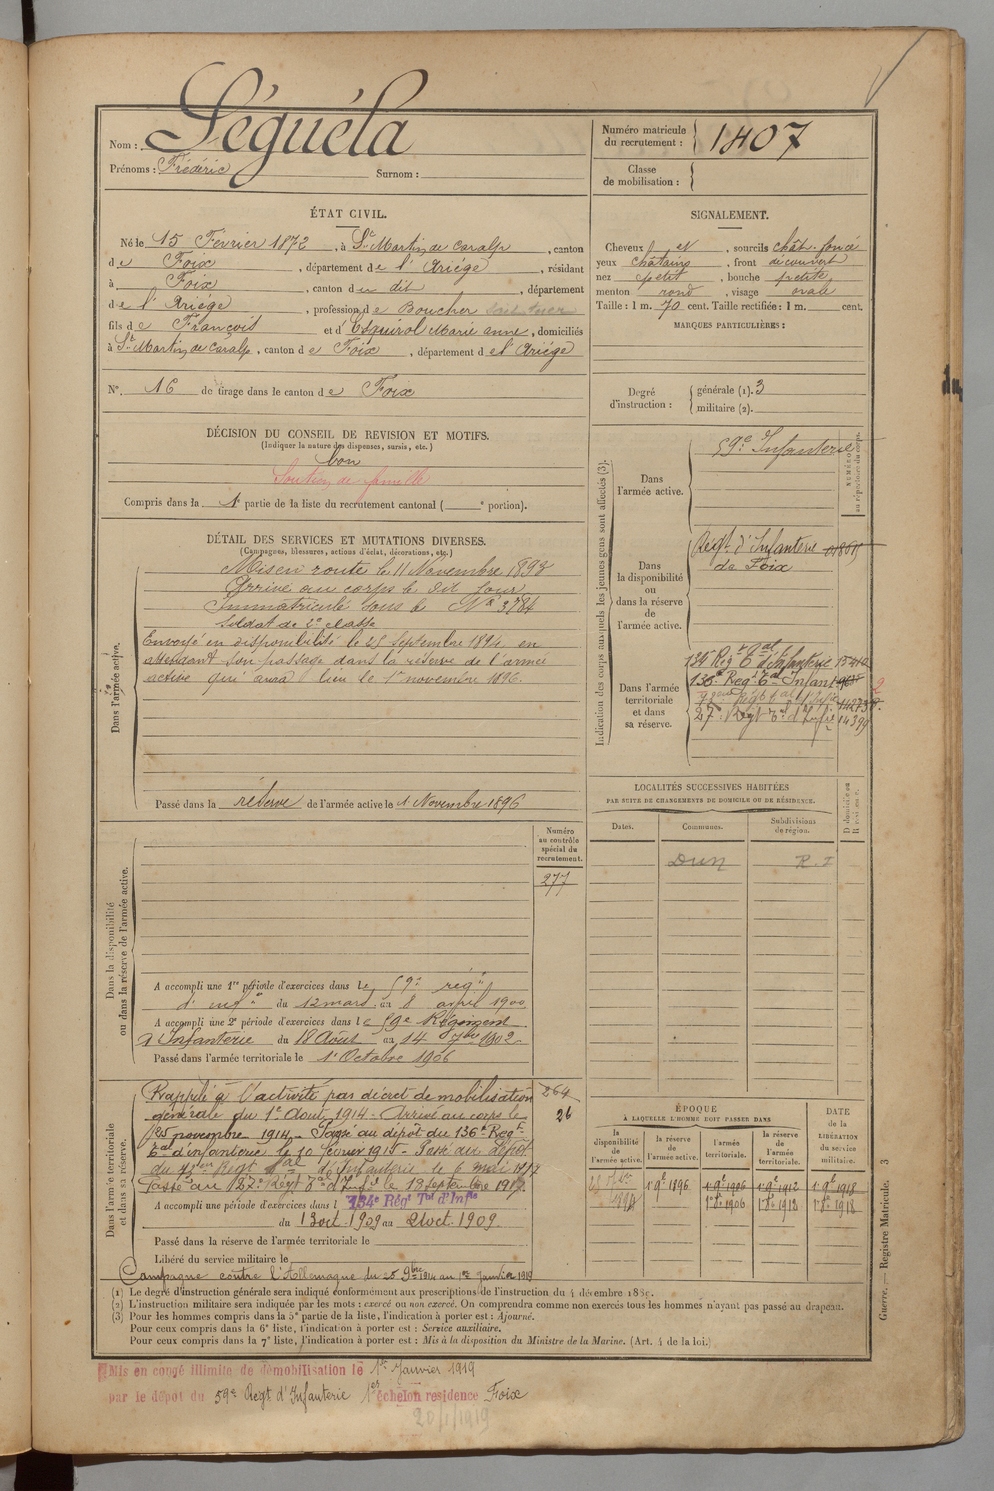 Nom : Séguéla
Prénoms : Frédéric Surnom :
Numéro matricule du recrutement : 1407
Classe de mobilisation :
ÉTAT CIVIL.
Né le 15 Février 1872, à St Martin de Caralp, canton
de Foix, département de l'Ariége, résidant
à Foix, canton du dit, département
de l'Ariége, profession de Boucher
fils de François et d'Esquirol Marie anne, domiciliés
à St Martin de Caralp, canton de Foix, département de l'Ariége
N° 16 de tirage dans le canton de Foix
SIGNALEMENT.
Cheveux et, sourcils chât. foncé
yeux châtains, front découvert
nez petit, bouche petite
menton rond, visage ovale
Taille : 1 m. 70 cent. Taille rectifiée : 1 m. cent.
MARQUES PARTICULIÈRES :
Degré d'instruction : générale (1). 3
militaire (2).
DÉCISION DU CONSEIL DE REVISION ET MOTIFS.
(Indiquer la nature des dispenses, sursis, etc.)
bon
Soutien de famille
Compris dans la 1e partie de la liste du recrutement cantonal ( e portion).
DÉTAIL DES SERVICES ET MUTATIONS DIVERSES.
(Campagnes, blessures, actions d'éclat, décorations, etc.)
Dans l'armée active.
Mis en route le 11 Novembre 1893
Arrivé au corps le dit jour
Immatriculé sous le No 3784
Soldat de 2e classe
Envoyé en disponibilité le 25 Septembre 1894 en
attendant son passage dans la réserve de l'armée
active qui aura lieu le 1er novembre 1896.
Passé dans la réserve de l'armée active le 1 Novembre 1896
Indication des corps auxquels les jeunes gens sont affectés (3).
NUMÉRO au répertoire du corps.
Dans l'armée active.
59e Infanterie
Dans la disponibilité ou dans la réserve de l'armée active.
Regt d'Infanterie
de Foix
Dans l'armée territoriale et dans sa réserve.
135 Regt Tal d'Infanterie
136e Regt Tal Infant
27e Regt Tal d'Infie 14399
LOCALITÉS SUCCESSIVES HABITÉES
PAR SUITE DE CHANGEMENTS DE DOMICILE OU DE RÉSIDENCE.
Dates. Communes. Subdivisions de région.
Dun
Dans la disponibilité ou dans la réserve de l'armée active.
Numéro au contrôle spécial du recrutement.
277
A accompli une 1re période d'exercices dans le 59e régt
d'infie du 12 mars au 8 avril 1900
A accompli une 2e période d'exercices dans le 59e Régiment
d'Infanterie du 18 Août au 14 7bre 1902
Passé dans l'armée territoriale le 1er Octobre 1906
Dans l'armée territoriale et dans sa réserve.
Rappelé à l'activité par décret de mobilisation 264
générale du 1er Aout 1914. Arrivé au corps le 26
25 novembre 1914. Passé au dépôt du 136e Regt
Tal d'infanterie le 10 février 1915 - Passé au Dépôt
du Regt Tal d'Infanterie le 6 mai 1917
Passé au 127e Régt Tal d'Infie le 13 septembre 1917.
A accompli une période d'exercices dans l 134e Régt Tal d'Infie
du 13 oct. 1909 au 21 oct. 1909
Passé dans la réserve de l'armée territoriale le
Libéré du service militaire le
Campagne contre l'Allemagne du 25 9bre 1914 au 1er Janvier 1919
ÉPOQUE
À LAQUELLE L'HOMME DOIT PASSER DANS
DATE DE LA LIBÉRATION du service militaire.
la disponibilité de l'armée active. la réserve de l'armée active. l'armée territoriale. la réserve de l'armée territoriale.
1 9e 1896 1 9e 1906 1 9e 1912 1 9e 1918
1894 1 8e 1906 1 8e 1912 1 8e 1918
(1) Le degré d'instruction générale sera indiqué conformément aux prescriptions de l'instruction du 4 décembre 1889.
(2) L'instruction militaire sera indiquée par les mots : exercé ou non exercé. On comprendra comme non exercés tous les hommes n'ayant pas passé au drapeau.
(3) Pour les hommes compris dans la 5e partie de la liste, l'indication à porter est : Ajourné.
Pour ceux compris dans la 6e liste, l'indication à porter est : Service auxiliaire.
Pour ceux compris dans la 7e liste, l'indication à porter est : Mis à la disposition du Ministre de la Marine. (Art. 4 de la loi.)
Guerre. — Registre Matricule. 3
Mis en congé illimité de démobilisation le 1er Janvier 1919
par le dépot du 59e Regt d'Infanterie 1er échelon residence Foix
20/1/1919